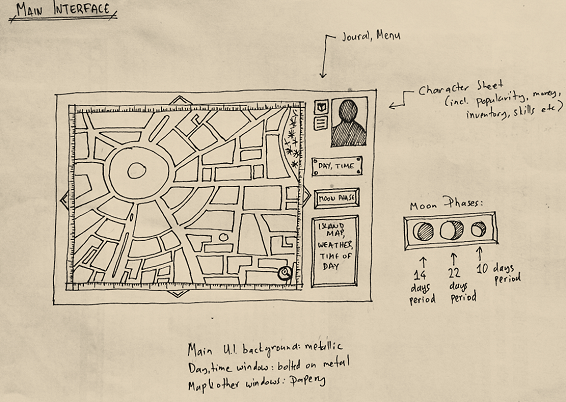 MAIN INTERFACE
Joural, Menu
Character Sheet
(incl. popularity, money,
inventory, skills etc)
DAY, TIME
MOON PHASE
ISLAND
MAP,
WEATHER,
TIME OF
DAY
Moon Phases:
14
days
period
22
days
period
10 days
period
Main U.I. background: metallic
Day, time window: bolted on metal
Map & other windows: Papery